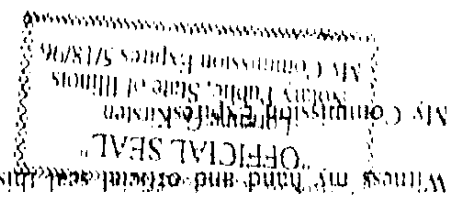 Witness my hand and official seal this
"OFFICIAL SEAL"
Kirsten
My Commission Expires
Notary Public, State of Illinois
My Commission Expires 5/18/96